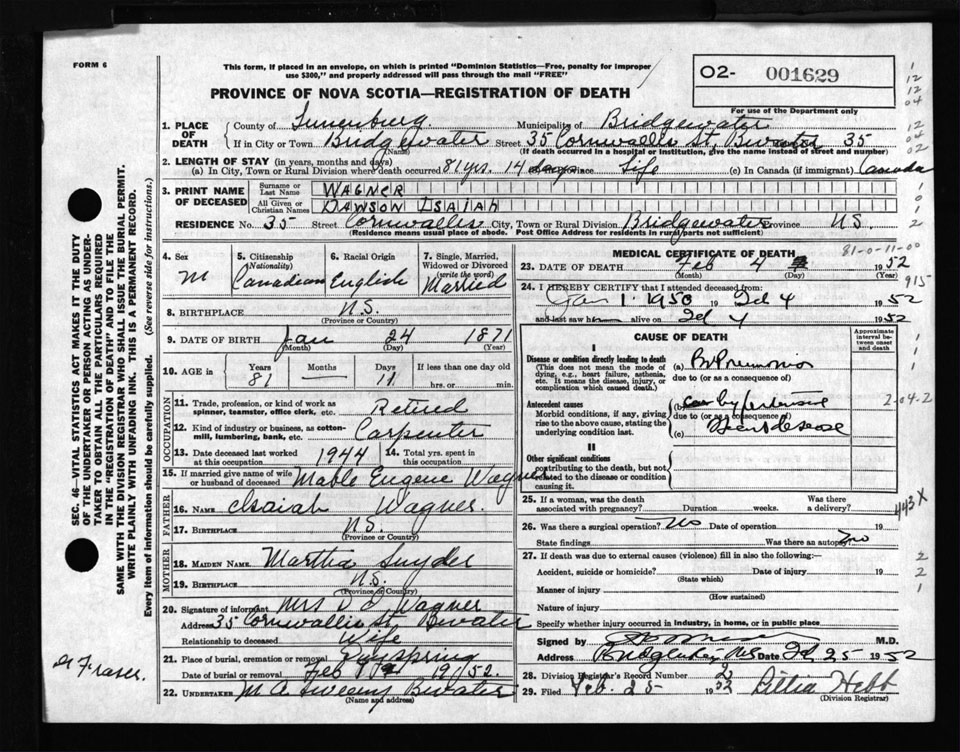 FORM 6
This form, if placed in an envelope, on which is printed "Dominion Statistics—Free, penalty for improper
use $300," and properly addressed will pass through the mail "FREE"
O2- 001629
For use of the Department only
PROVINCE OF NOVA SCOTIA—REGISTRATION OF DEATH
1. PLACE OF DEATH County of Lunenburg Municipality of Bridgewater
If in City or Town Bridgewater (Name) Street 35 Cornwallis St, Bwater 35
(If death occurred in a hospital or institution, give the name instead of street and number)
2. LENGTH OF STAY (in years, months and days)
(a) In City, Town or Rural Division where death occurred 81 yrs. 14 days Life (c) In Canada (if immigrant) Canada
3. PRINT NAME OF DECEASED Surname or Last Name WAGNER
All Given or Christian Names DAWSON ISAIAH
RESIDENCE No. 35 Street Cornwallis City, Town or Rural Division Bridgewater Province NS
(Residence means usual place of abode. Post Office Address for residents in rural parts not sufficient)
4. Sex M
5. Citizenship (Nationality) Canadian
6. Racial Origin English
7. Single, Married, Widowed or Divorced (write the word) Married
8. BIRTHPLACE N.S.
(Province or Country)
9. DATE OF BIRTH Jan 24 1871
(Month) (Day) (Year)
10. AGE in Years 81 Months — Days 11 If less than one day old
hrs. or min.
OCCUPATION
11. Trade, profession, or kind of work as
spinner, teamster, office clerk, etc. Retired
12. Kind of industry or business, as cotton-
mill, lumbering, bank, etc. Carpenter
13. Date deceased last worked
at this occupation 1944 14. Total yrs. spent in
this occupation
15. If married give name of wife
or husband of deceased Mable Eugene Wagner
FATHER
16. NAME Isaiah Wagner
17. BIRTHPLACE N.S.
(Province or Country)
MOTHER
18. MAIDEN NAME Martha Snyder
19. BIRTHPLACE N.S.
(Province or Country)
20. Signature of informant Mrs D I Wagner
Address 35 Cornwallis St Bwater
Relationship to deceased Wife
21. Place of burial, cremation or removal Dayspring
Date of burial or removal Feb 19/52.
22. UNDERTAKER M A Sweeny Bwater
(Name and address)
MEDICAL CERTIFICATE OF DEATH
81-0-11-00
23. DATE OF DEATH Feb 4 1952
(Month) (Day)
915
24. I HEREBY CERTIFY that I attended deceased from:
Jan 1. 1950 19 Feb 4 1952
and last saw him alive on Feb 4 1952
CAUSE OF DEATH
Approximate interval between onset and death
I
Disease or condition directly leading to death
(This does not mean the mode of dying, e.g., heart failure, asthenia, etc. It means the disease, injury, or complication which caused death.)
(a) B. Pneumonia
due to (or as a consequence of)
Antecedent causes
Morbid conditions, if any, giving rise to the above cause, stating the underlying condition last.
(b) hypertensive
due to (or as a consequence of)
(c) Heart disease
2-04-2
II
Other significant conditions
contributing to the death, but not related to the disease or condition causing it.
25. If a woman, was the death
associated with pregnancy? Duration weeks. Was there a delivery?
443 X
26. Was there a surgical operation? No Date of operation 19
State findings Was there an autopsy? no
27. If death was due to external causes (violence) fill in also the following:—
Accident, suicide or homicide? Date of injury 19
(State which)
Manner of injury
(How sustained)
Nature of injury
Specify whether injury occurred in industry, in home, or in public place
Signed by M.D.
Address Bridgewater NS Date Feb 25 1952
28. Division Registrar's Record Number 2
29. Filed Feb. 25 1952 Lillia Hebb
(Division Registrar)
SEC. 46—VITAL STATISTICS ACT MAKES IT THE DUTY
OF THE UNDERTAKER OR PERSON ACTING AS UNDER-
TAKER TO OBTAIN ALL THE PARTICULARS REQUIRED
IN THE "REGISTRATION OF DEATH" AND TO FILE THE
SAME WITH THE DIVISION REGISTRAR WHO SHALL ISSUE THE BURIAL PERMIT.
WRITE PLAINLY WITH UNFADING INK. THIS IS A PERMANENT RECORD.
Every item of information should be carefully supplied. (See reverse side for instructions.)
Fraser.